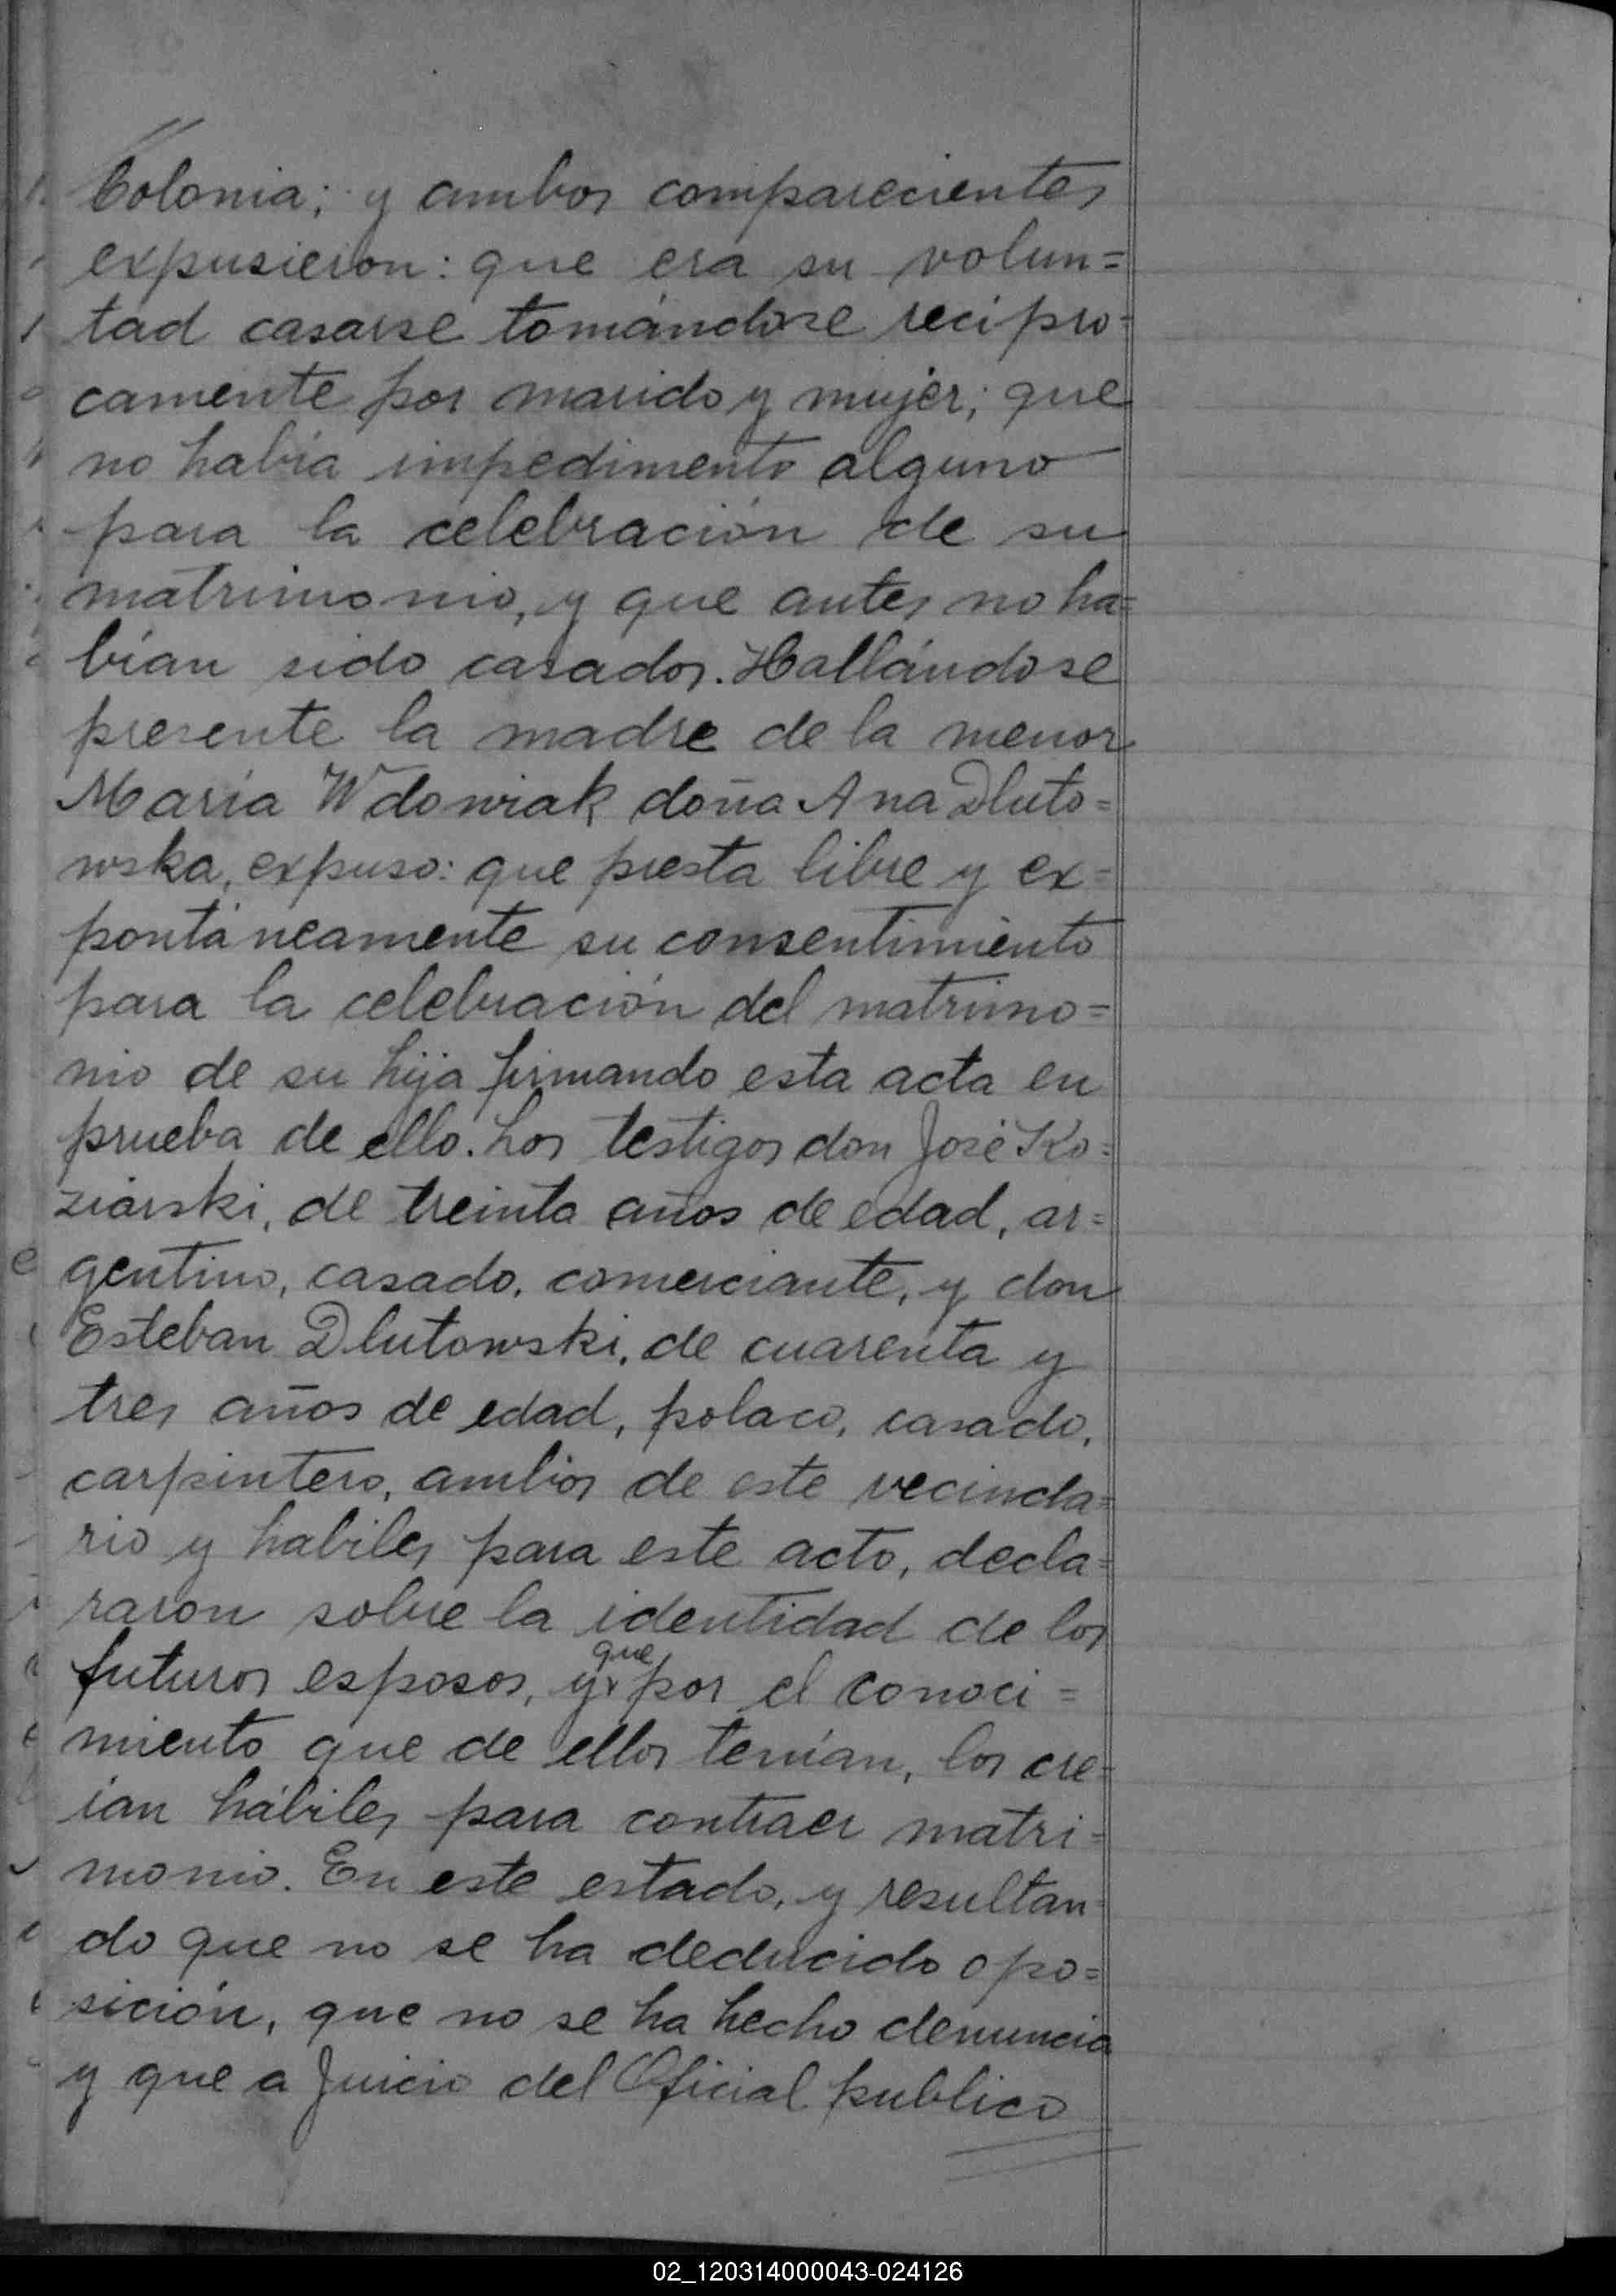 //
Colonia; y ambos comparecientes
expusieron: que era su volun=
tad casarse tomándose recipro=
camente por marido y mujer; que
no había impedimento alguno
para la celebración de su
matrimonio, y que antes no ha=
bían sido casados. Hallándose
presente la madre de la menor
María Wdowiak doña Ana Dluto=
wska, expuso: que presta libre y ex=
pontáneamente su consentimiento
para la celebración del matrimo=
nio de su hija firmando esta acta en
prueba de ello. Los testigos don José Ko=
ziarski, de treinta años de edad, ar=
gentino, casado, comerciante, y don
Esteban Dlutowski, de cuarenta y
tres años de edad, polaco, casado,
carpintero, ambos de este vecinda=
rio y habiles para este acto, decla=
raron sobre la identidad de los
futuros esposos, y que por el conoci=
miento que de ellos tenían, los cre=
ían hábiles para contraer matri=
monio. En este estado, y resultan=
do que no se ha deducido opo=
sición, que no se ha hecho denuncia
y que a Juicio del Oficial publico
02_120314000043-024126